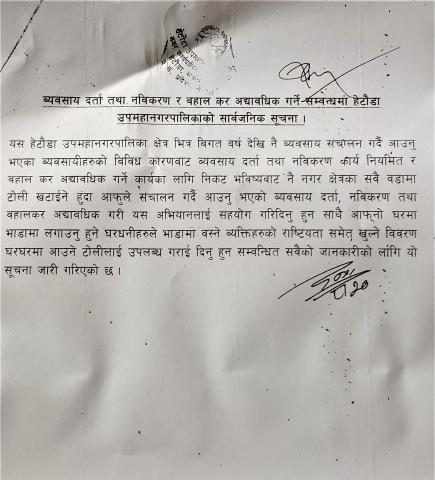 व्यवसाय दर्ता तथा नविकरण र वहाल कर अद्यावधिक गर्ने सम्वन्धमा हेटौडा
उपमहानगरपालिकाको सार्वजनिक सूचना ।
यस हेटौडा उपमहानगरपालिका क्षेत्र भित्र विगत वर्ष देखि नै व्यवसाय संचालन गर्दै आउनु
भएका व्यवसायीहरुको विविध कारणवाट व्यवसाय दर्ता तथा नविकरण कार्य नियमित र
वहाल कर अद्यावधिक गर्ने कार्यका लागि निकट भविष्यवाट नै नगर क्षेत्रका सवै वडामा
टोली खटाईने हुदा आफुले संचालन गर्दै आउनु भएको व्यवसाय दर्ता, नविकरण तथा
वहालकर अद्यावधिक गरी यस अभियानलाई सहयोग गरिदिनु हुन साथै आफ्नो घरमा
भाडामा लगाउनु हुने घरधनीहरुले भाडामा वस्ने व्यक्तिहरुको राष्टियता समेत् खुल्ने विवरण
घरघरमा आउने टोलीलाई उपलब्ध गराई दिनु हुन सम्वन्धित सवैको जानकारीको लागि यो
सूचना जारी गरिएको छ ।